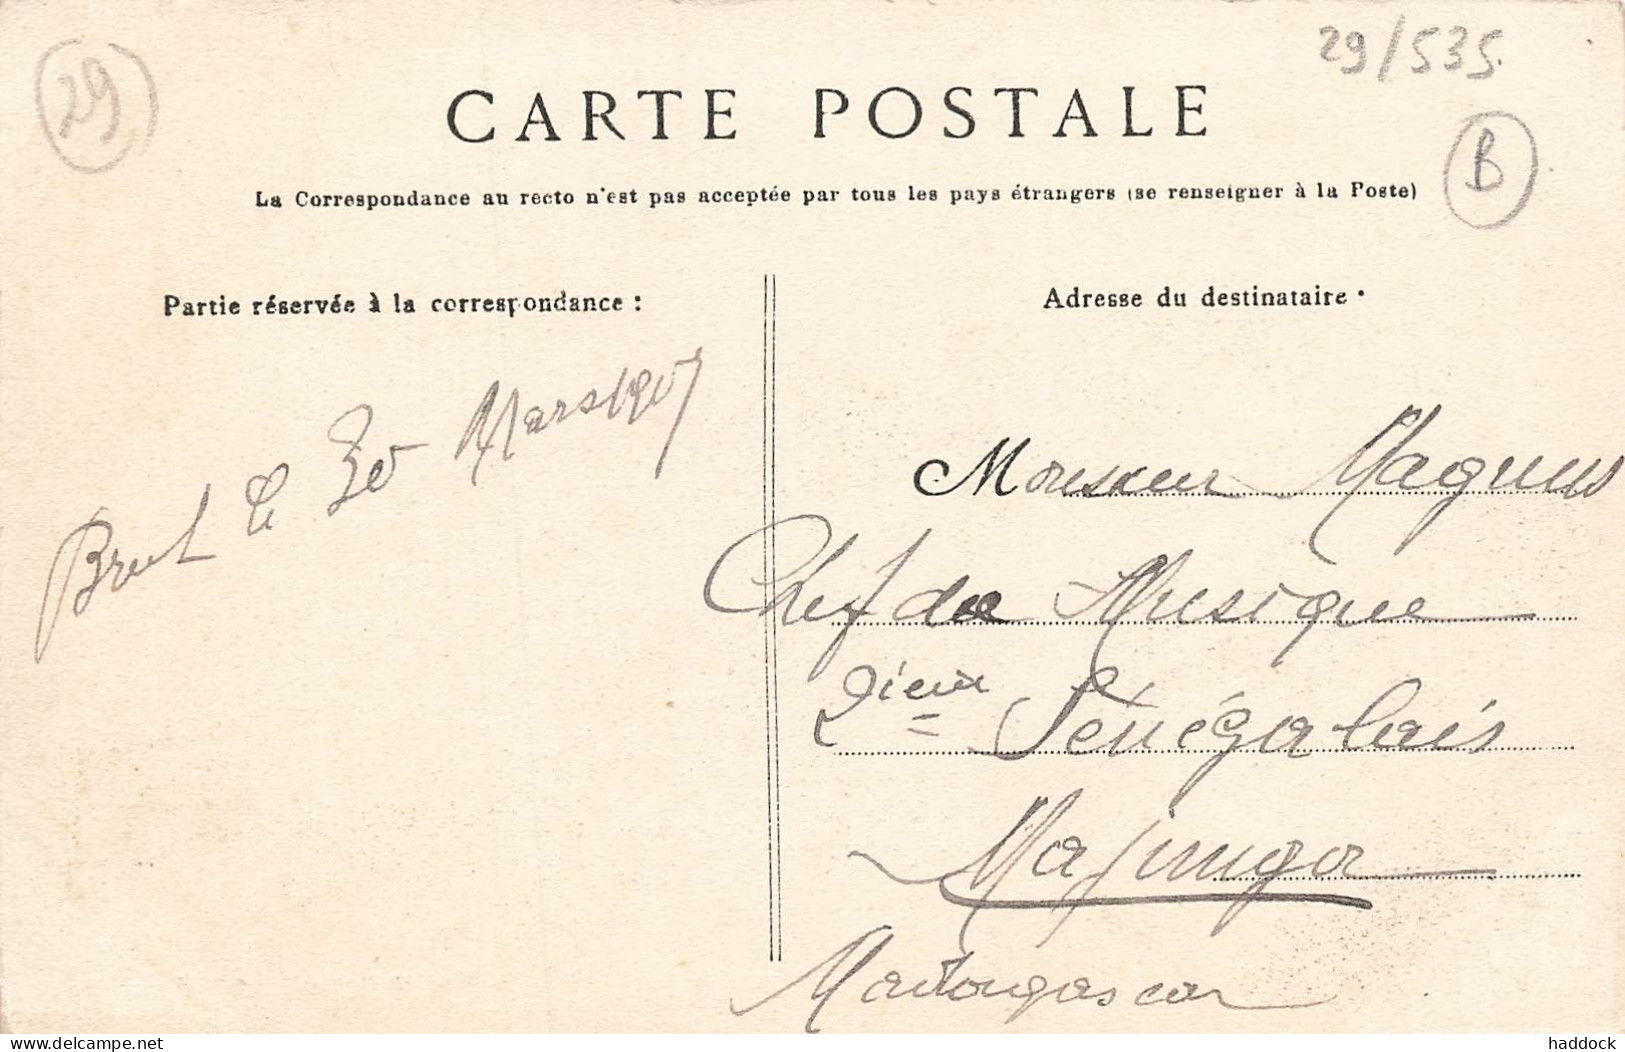 29
29/535
CARTE POSTALE
B
La Correspondance au recto n'est pas acceptée par tous les pays étrangers (se renseigner à la Poste)
Partie réservée à la correspondance :
Brest le 30 Mars 1907
Adresse du destinataire :
Monsieur Magnus
Chef de Musique
2ieme Sénégalais
Majunga
Madagascar
delcampe.net
haddock